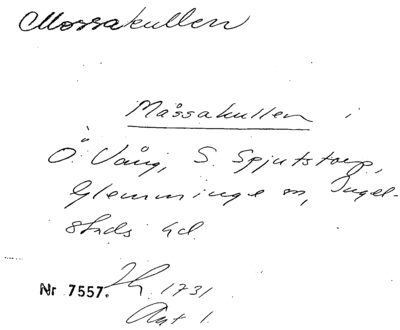 Mossakullen
Måssakullen i
Ö. Vång, S. Spjutstorp,
Glemminge sn, Ingel-
stads hd.
Nr 7557. 1731
Akt 1.